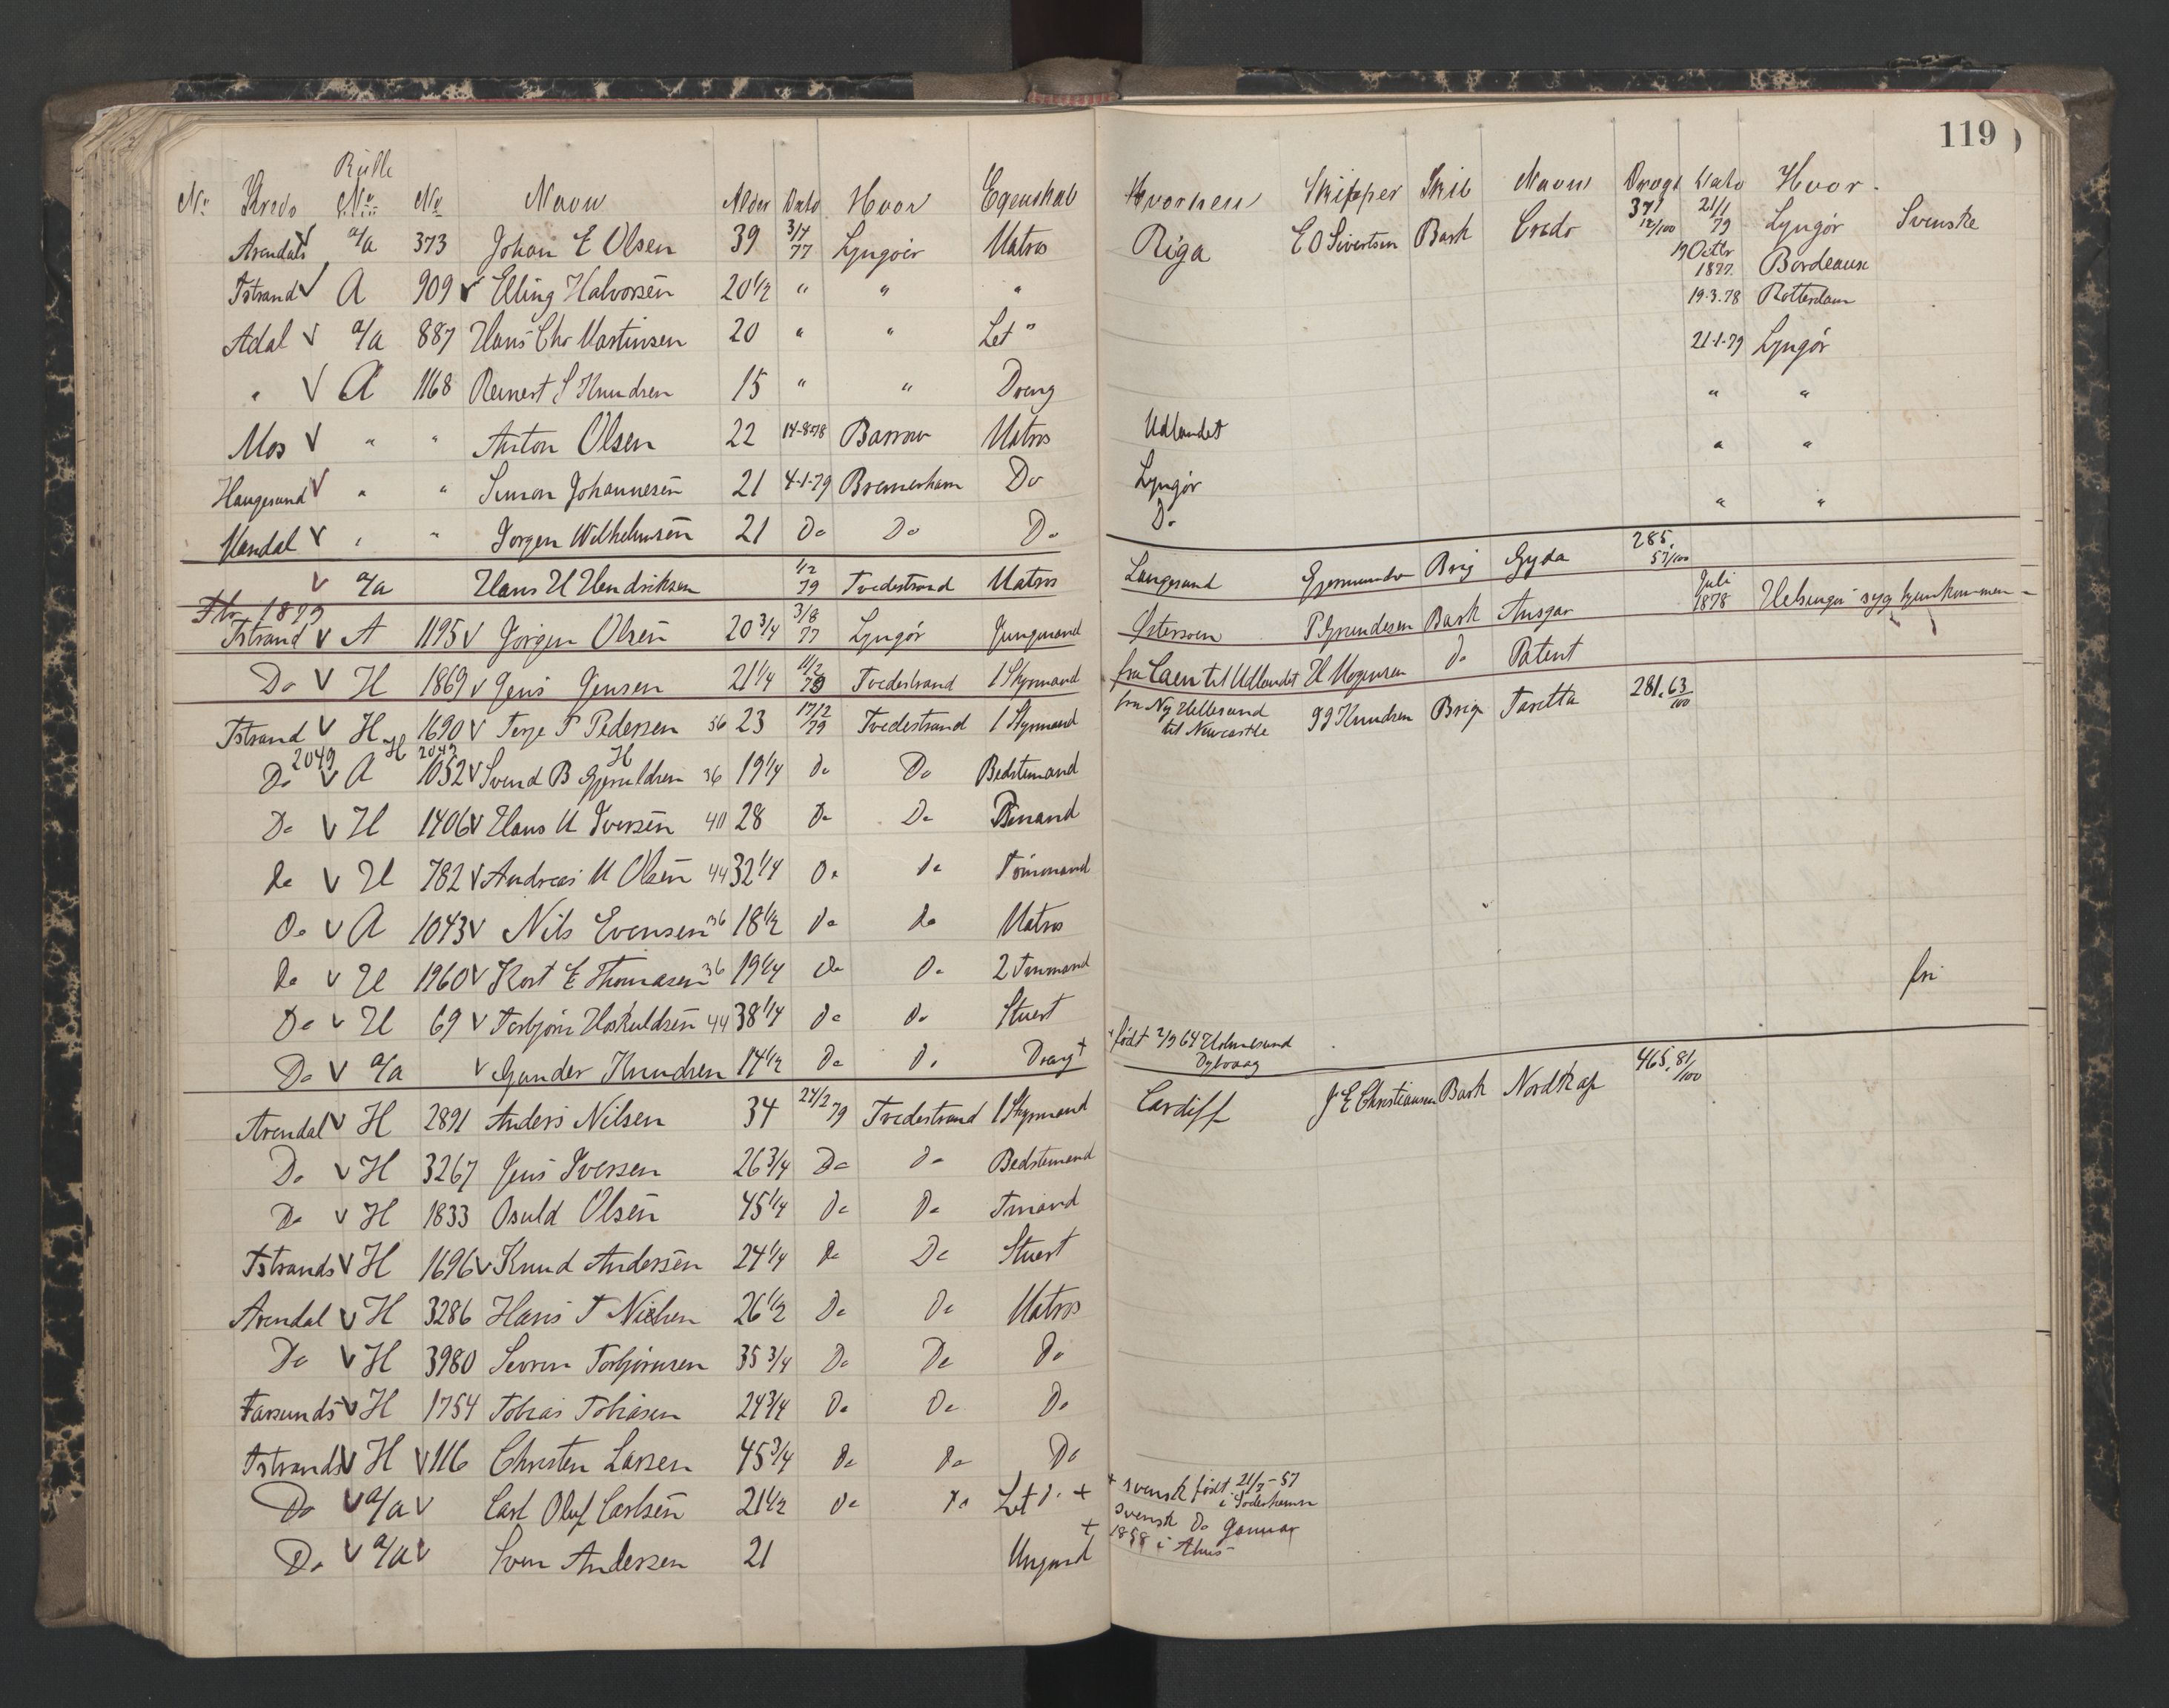 119
Rulle
No Kreds No No Navn Alder Dato Hvor Egenskab Hvorhen Skipper Skib Navn Drægt Dato Hvor
Arendals a/a 373 Johan E Olsen 39 3/7 77 Lyngöer Matros Riga E O Sivertsen Bark Credo 371 12/100 21/1 79 Lyngör Svenske
19 Octbr 1877 Bordeaux
Tstrand A 909 Elling Halvorsen 20 1/2 " " " 19.3.78 Rotterdam
Adal a/a 887 Hans Chr Martinsen 20 " " Let " 21-1-79 Lyngör
" A 1168 Reinert S Knudsen 15 " " Dreng " "
Mos " " Anton Olsen 22 14-8-78 Barrow Matros Udlandet " "
Haugesund " " Simon Johannesen 21 4-1-79 Bremerhavn Do Lyngör " "
Mandal " " Jörgen Wilhelmsen 21 Do Do Do Do
a/a Hans M Hendriksen 1/2 79 Tvedestrand Matros Langesund Brig Gyda 285, 57/100
Fbr 1879
Tstrand A 1195 Jörgen Olsen 20 3/4 3/8 77 Lyngör Jungmand Östersøen P Grundesen Bark Ansgar Juli 1878 Helsingør syg hjemkommen
Do H 1869 Jens Jensen 21 1/4 11/2 79 Tvedestrand 1 Styrmand fra Caen til Udlandet H Mogensen do Patent
Tstrand H 1690 Terje T Pedersen 36 23 17/2 79 Tvedestrand 1 Styrmand fra Ny Hellesund til Newcastle Knudsen Brig Taritta 281, 63/100
2049 H 2049 H
Do A 1052 Svend B Gjeruldsen 36 19 1/4 do Do Bedstemand
Do H 1406 Hans M Iversen 40 28 Do Do Bmand
do H 782 Andreas M Olsen 44 32 1/4 Do do Tömmand
Do A 1043 Nils Evensen 36 18 1/2 do do Matros
do H 1960 Kort E Thomasen 36 19 1/4 do Do 2 Tömmand fri
Do H 69 Torbjörn Hoskuldsen 44 38 1/4 do do Stuert
Do a/a Gunder Knudsen 14 1/2 Do do Dreng + + født 2/9 64 Holmesund Dybvaag
Arendal H 2891 Anders Nilsen 34 24/2 79 Tvedestrand 1 Styrmand Cardiff J E Christiansen Bark Nordkap 465, 81/100
Do H 3267 Jens Iversen 26 3/4 Do do Bedstemand
Do H 1833 Osuld Olsen 45 1/4 do Do Tmand
Tstrands H 1696 Knud Andersen 24 1/4 do Do Stuert
Arendal H 3286 Hans T Nielsen 26 1/2 Do Do Matros
Do H 3980 Sevren Torbjörnsen 35 3/4 Do Do Do
Farsunds H 1754 Tobias Tobiasen 24 3/4 Do Do Do
Tstrands H 116 Christen Larsen 45 3/4 do do Do
Do a/a Carl Oluf Carlsen 21 1/2 do do Let do + + svensk født 21/3-57 i Söderhamn
Do a/a Sven Andersen 21 Ungmd + svensk Do Januar 1858 i Ahus